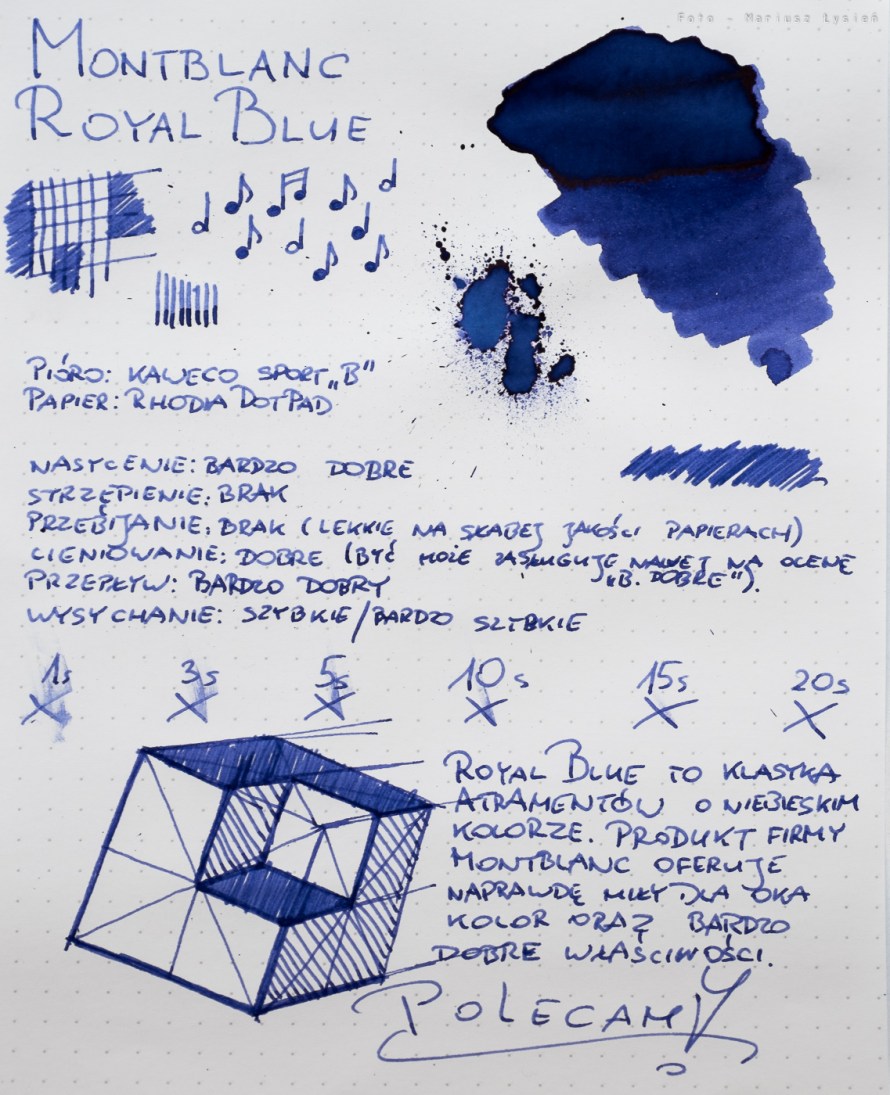 Foto - Mariusz Łysień
MONTBLANC
ROYAL BLUE
PIÓRO: KAWECO SPORT „B”
PAPIER: RHODIA DOTPAD
NASYCENIE: BARDZO DOBRE
STRZĘPIENIE: BRAK
PRZEBIJANIE: BRAK (LEKKIE NA SŁABEJ JAKOŚCI PAPIERACH)
CIENIOWANIE: DOBRE (BYĆ MOŻE ZASŁUGUJE NAWET NA OCENĘ
„B. DOBRE”).
PRZEPŁYW: BARDZO DOBRY
WYSYCHANIE: SZYBKIE/BARDZO SZYBKIE
1s 3s 5s 10s 15s 20s
ROYAL BLUE TO KLASYKA
ATRAMENTÓW O NIEBIESKIM
KOLORZE. PRODUKT FIRMY
MONTBLANC OFERUJE
NAPRAWDĘ MIŁY DLA OKA
KOLOR ORAZ BARDZO
DOBRE WŁAŚCIWOŚCI.
POLECAMY